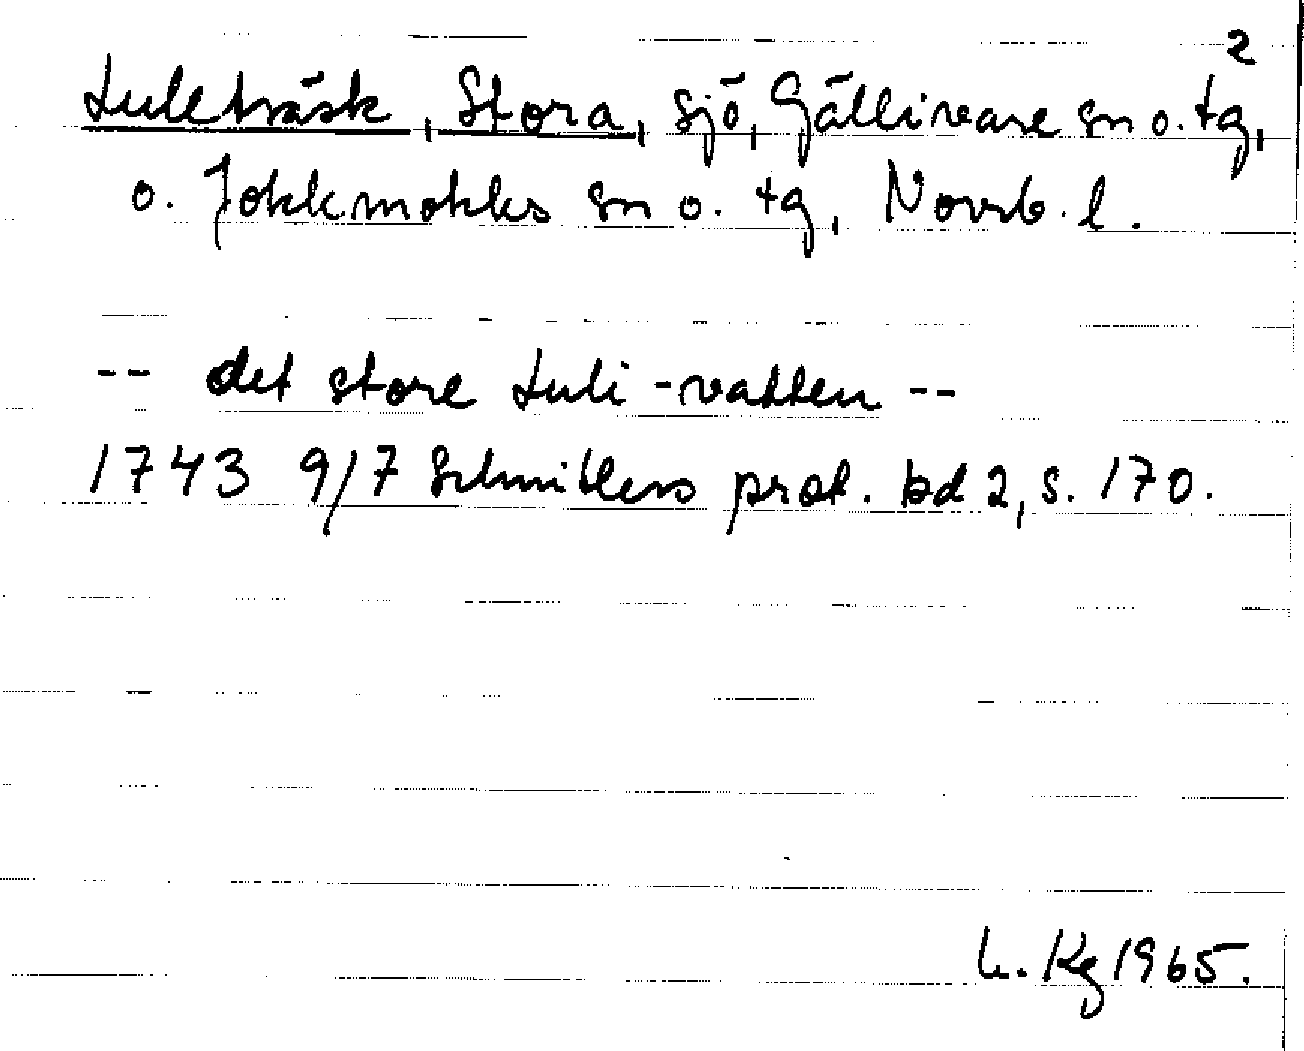 2
Luleträsk, Stora, sjö, Gällivare sn o. tg,
o. Jokkmokks sn o. tg, Norrb. l.
-- det store Luli-vatten --
1743 9/7 Schnitlers prot. bd 2, s. 170.
L. Kg 1965.